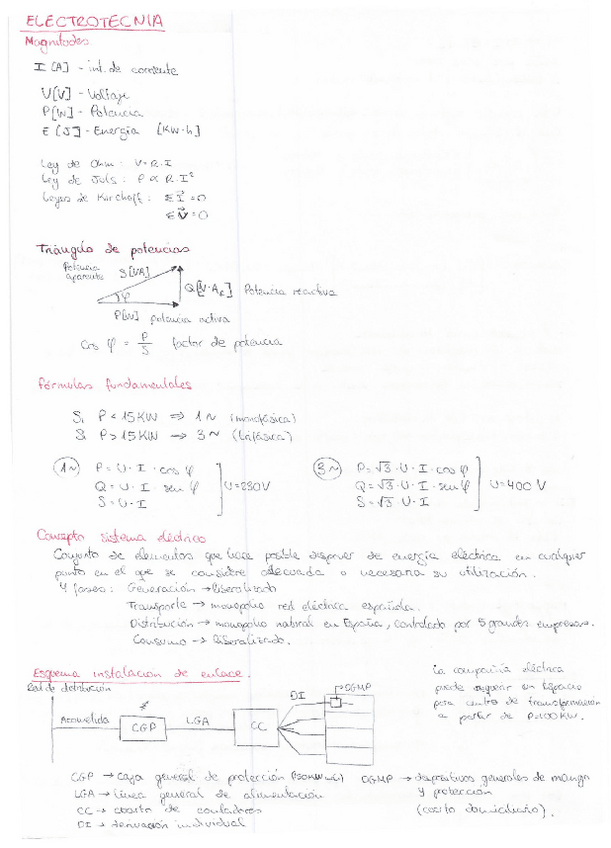 ELECTROTECNIA
Magnitudes
I [A] - int. de corriente
U[V] - Voltaje
P[W] - Potencia
E [J] - Energía [KW·h]
Ley de Ohm : V = R.I
Ley de Juls : P ∝ R.I²
Leyes de Kirchoff : Σ I = 0
Σ V = 0
Triángulo de potencias
Potencia aparente S[VA]
Q[V·Ar] Potencia reactiva
φ
P[W] potencia activa
Cos φ = P/S factor de potencia
Fórmulas fundamentales
Si P < 15KW ⇒ 1~ (monofásica)
Si P > 15KW → 3~ (trifásica)
1~ P = U · I · cos φ
Q = U · I · sen φ
S = U · I
U = 230V
3~ P = √3 · U · I · cos φ
Q = √3 · U · I · sen φ
S = √3 · U · I
U = 400 V
Concepto sistema eléctrico
Conjunto de elementos que hace posible disponer de energía eléctrica en cualquier
punto en el que se considere adecuada o necesaria su utilización.
4 fases : Generación → liberalizado
Transporte → monopolio red eléctrica española.
Distribución → monopolio natural en España, controlado por 5 grandes empresas.
Consumo → liberalizado.
Esquema instalación de enlace.
Red de distribución
Acometida
CGP
LGA
CC
DI
DGMP
La compañía eléctrica
puede requerir un Espacio
para centro de transformación
a partir de P=100 KW.
CGP → caja general de protección
LGA → línea general de alimentación
CC → cuarto de contadores
DI → derivación individual
DGMP → dispositivos generales de mando
y protección
(cuarto domiciliario).